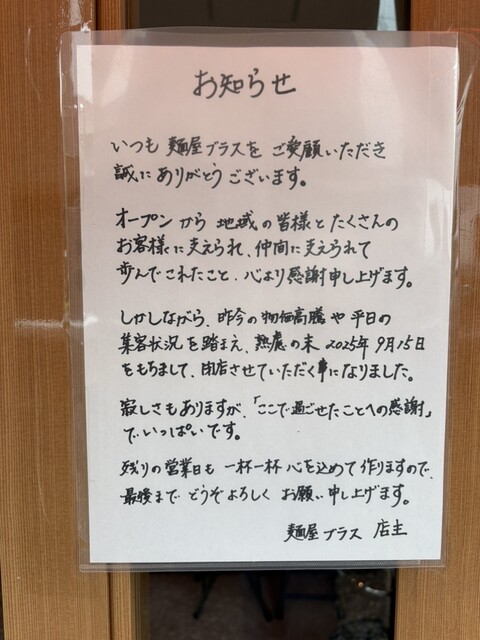 お知らせ
いつも 麺屋ブラスを ご愛顧いただき
誠に ありがとう ございます。
オープン から 地域 の 皆様 と たくさんの
お客様 に 支えられ、仲間に 支えられて
歩んで これたこと、心より 感謝 申し上げます。
しかしながら、昨今の 物価高騰 や 平日の
集客状況 を 踏まえ、熟慮の末 2025年 9月15日
をもちまして、閉店させていただく事になりました。
寂しさも ありますが、「ここで 過ごせたことへの 感謝」
で いっぱい です。
残りの 営業日も 一杯一杯 心を込めて 作りますので、
最後まで どうぞよろしく お願い 申し上げます。
麺屋 ブラス 店主